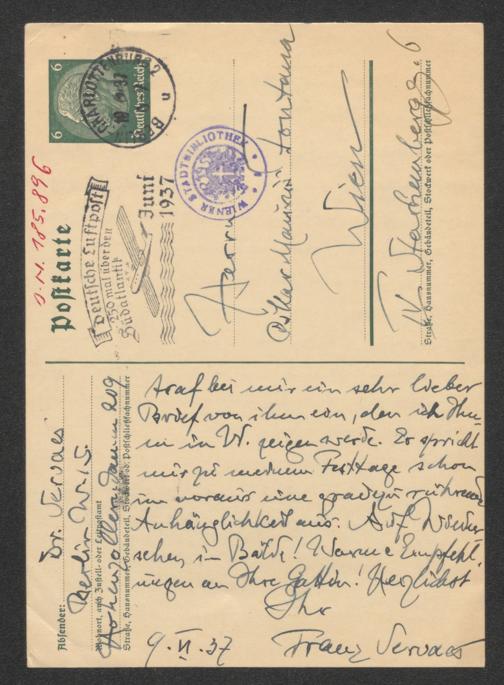 J.N. 185.896
Postkarte
6 Deutsches Reich 6
CHARLOTTENBURG 2
Deutsche Luftpost
250 mal über den
Südatlantik
Juni
1937
WIENER STADTBIBLIOTHEK
Herrn
Oskar Maurus Fontana
Wien
IV. Starhembergg. 6
Straße, Hausnummer, Gebäudeteil, Stockwerk oder Postschließfachnummer
Absender: Dr. Servaes
Berlin W. 15.
Wohnort, auch Zustell- oder Leitpostamt
Hohenzollerndamm 209
Straße, Hausnummer, Gebäudeteil, Stockwerk od. Postschließfachnummer
traf bei mir ein sehr lieber
Brief von ihm ein, den ich Ih-
nen in W. zeigen werde. Es spricht
mir zu meinem Festtage schon
im voraus eine gradezu rührende
Anhänglichkeit aus. Auf Wieder-
sehen in Bälde! Warme Empfehl-
ungen an Ihre Gattin! Herzlichst
Ihr
9. VI. 37 Franz Servaes